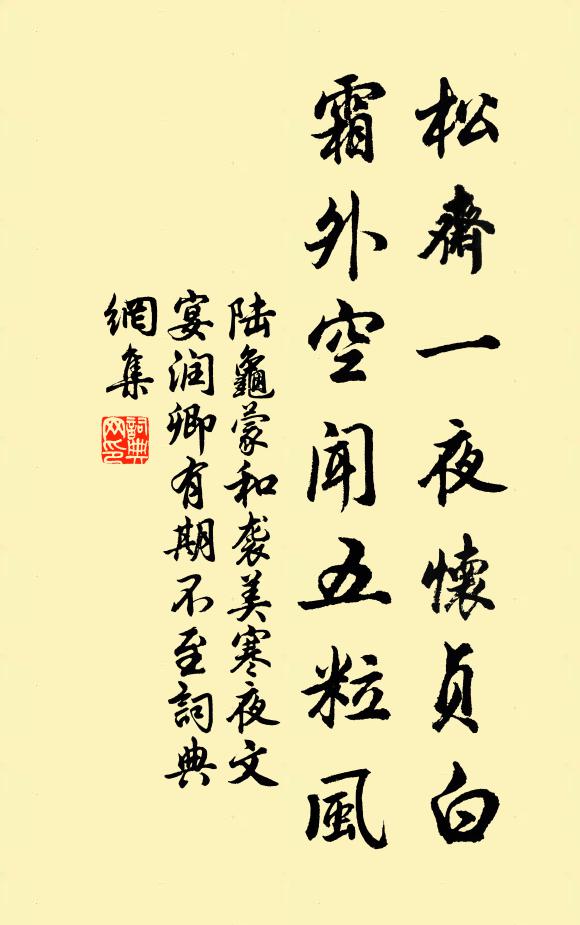 松齋一夜懷貞白
霜外空聞五粒風
陆龜蒙和袭美寒夜文
宴润卿有期不至詞典
網集
詞典
网印